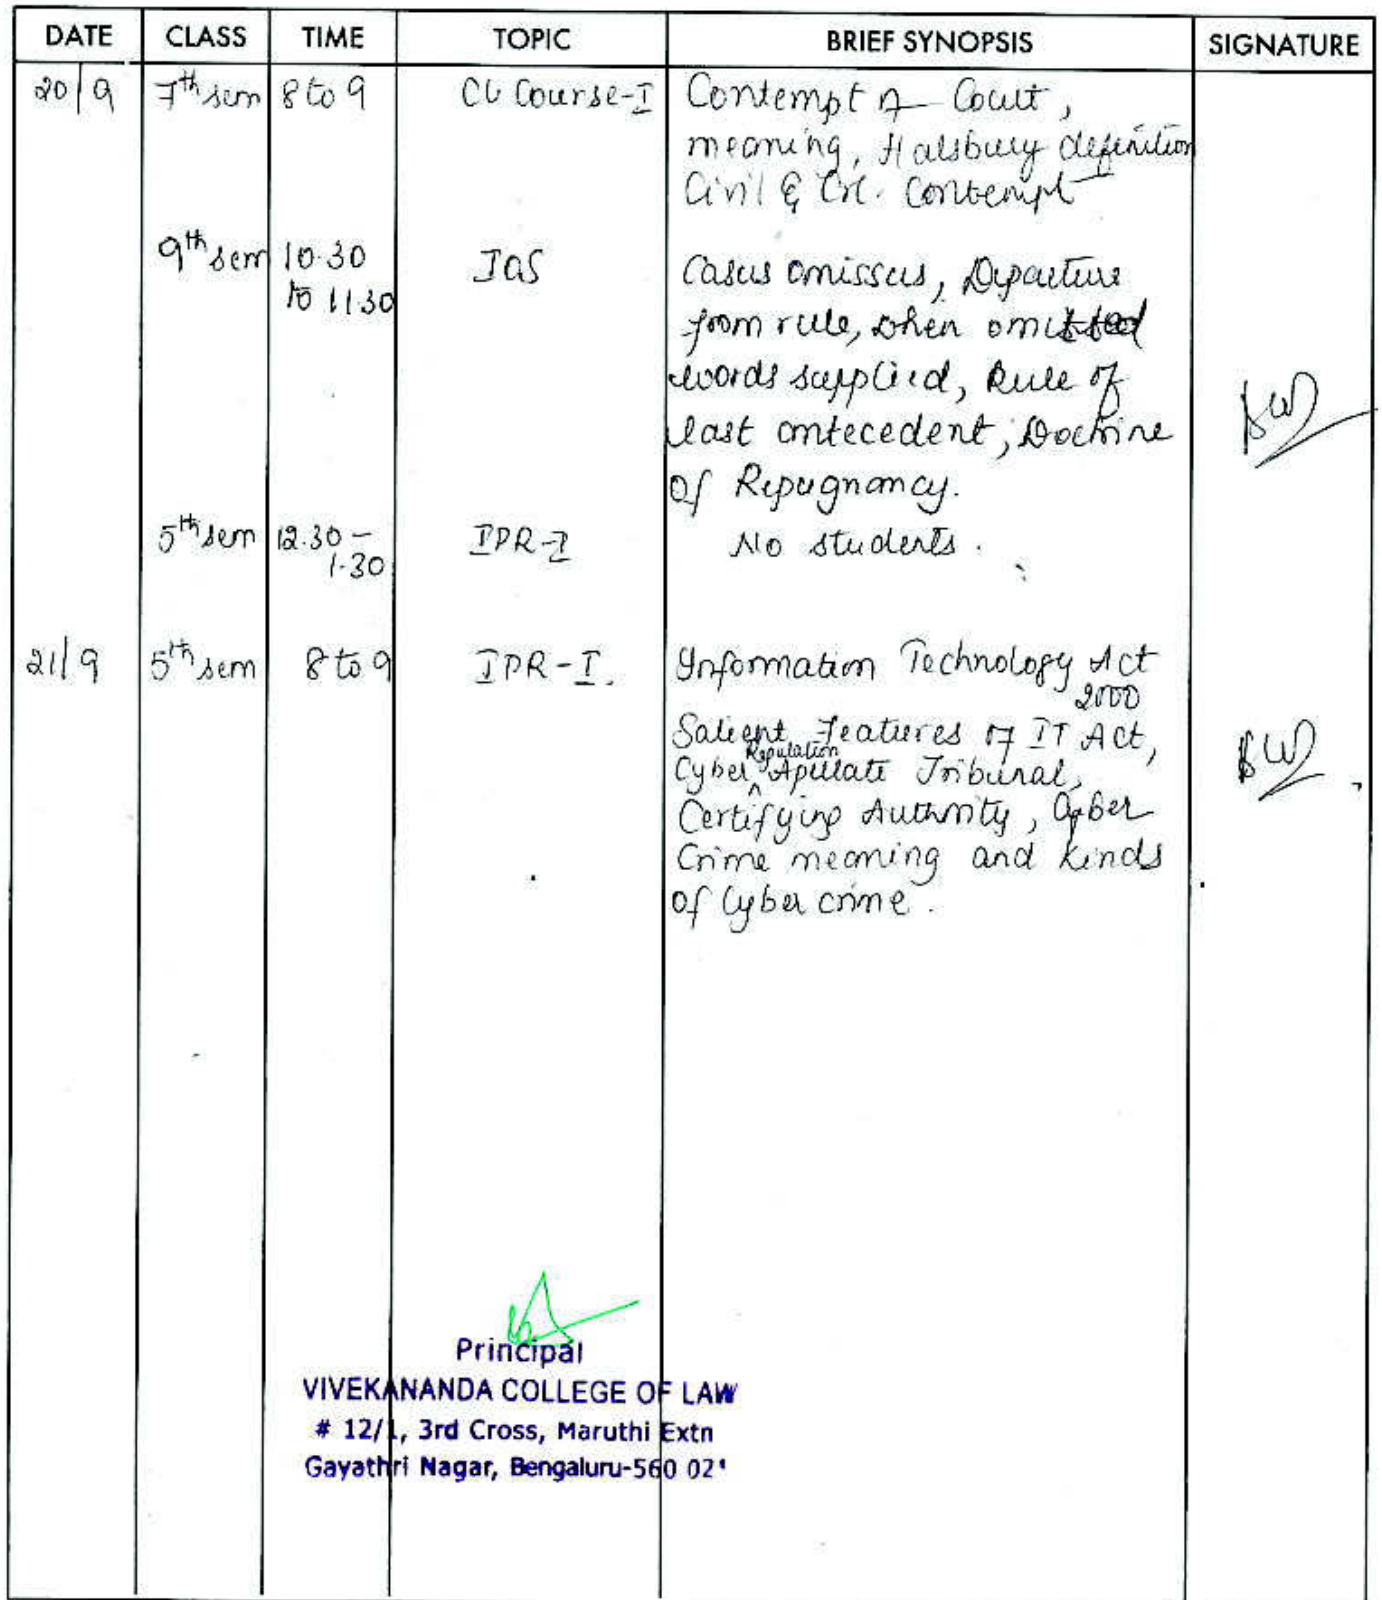 DATE CLASS TIME TOPIC BRIEF SYNOPSIS SIGNATURE
20/9 7th sem 8 to 9 Course-I Contempt of Court,
meaning, Halsbury definition
Civil & Crl. Contempt
9th sem 10.30 IOS Casus omissus, Departure
to 11.30 from rule, when omitted
words supplied, Rule of
last antecedent, Doctrine
of Repugnancy.
5th sem 12.30 – IPR-I No students.
1.30
21/9 5th sem 8 to 9 IPR-I. Information Technology Act
2000
Salient Features of IT Act,
Regulation
Cyber ^ Apellate Tribunal,
Certifying Authority, Cyber
Crime meaning and kinds
of Cyber crime.
Principal
VIVEKANANDA COLLEGE OF LAW
# 12/1, 3rd Cross, Maruthi Extn
Gayathri Nagar, Bengaluru-560 02